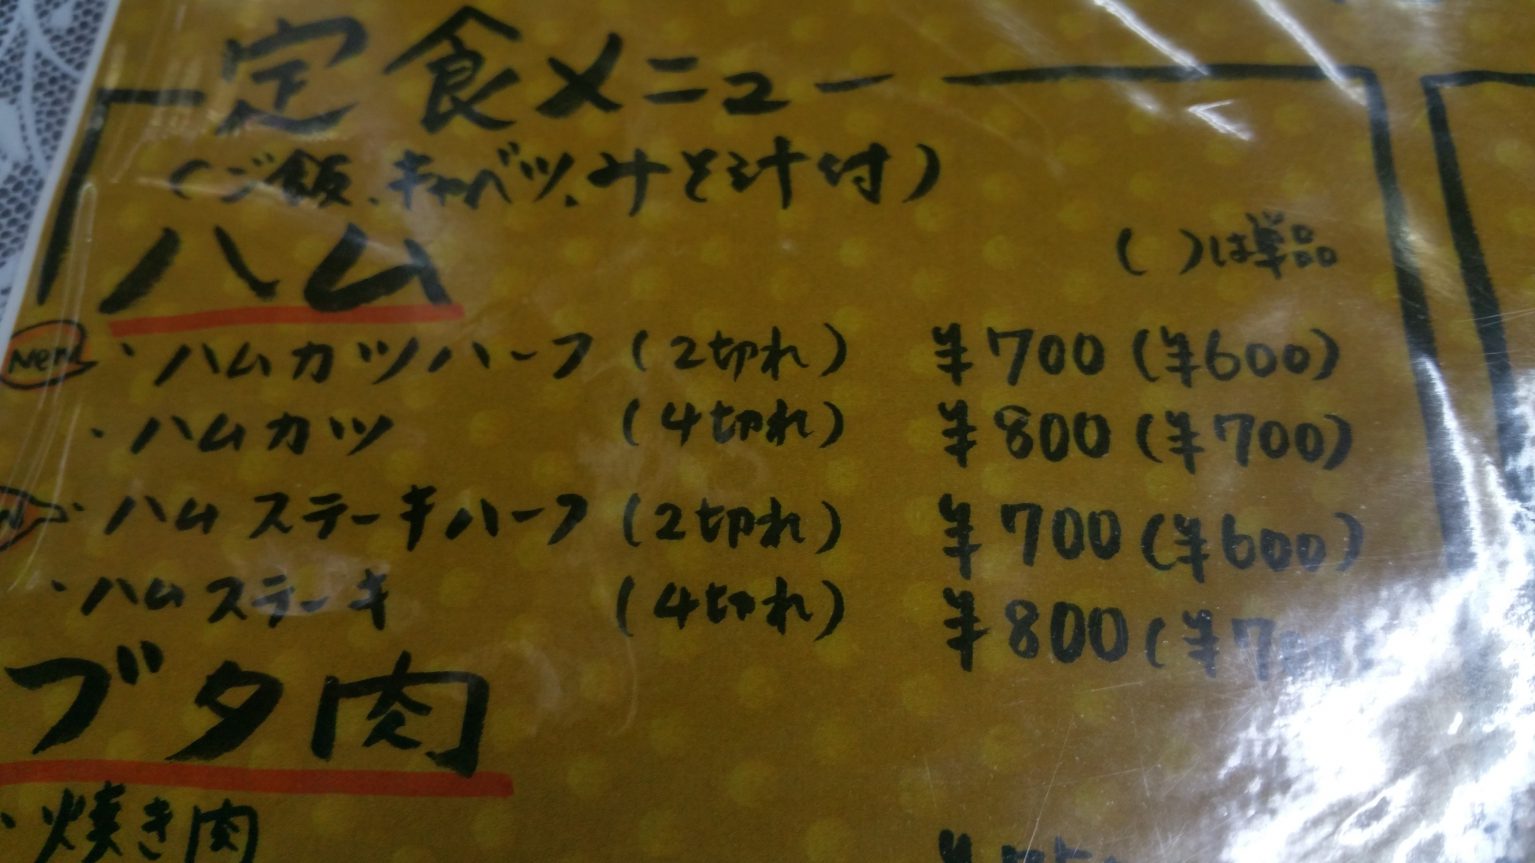 定食メニュー
(ご飯、キャベツ、みそ汁付)
( )は単品
ハム
New ・ハムカツハーフ (2切れ) ¥700 (¥600)
・ハムカツ (4切れ) ¥800 (¥700)
・ハムステーキハーフ (2切れ) ¥700 (¥600)
・ハムステーキ (4切れ) ¥800
ブタ肉
・焼き肉